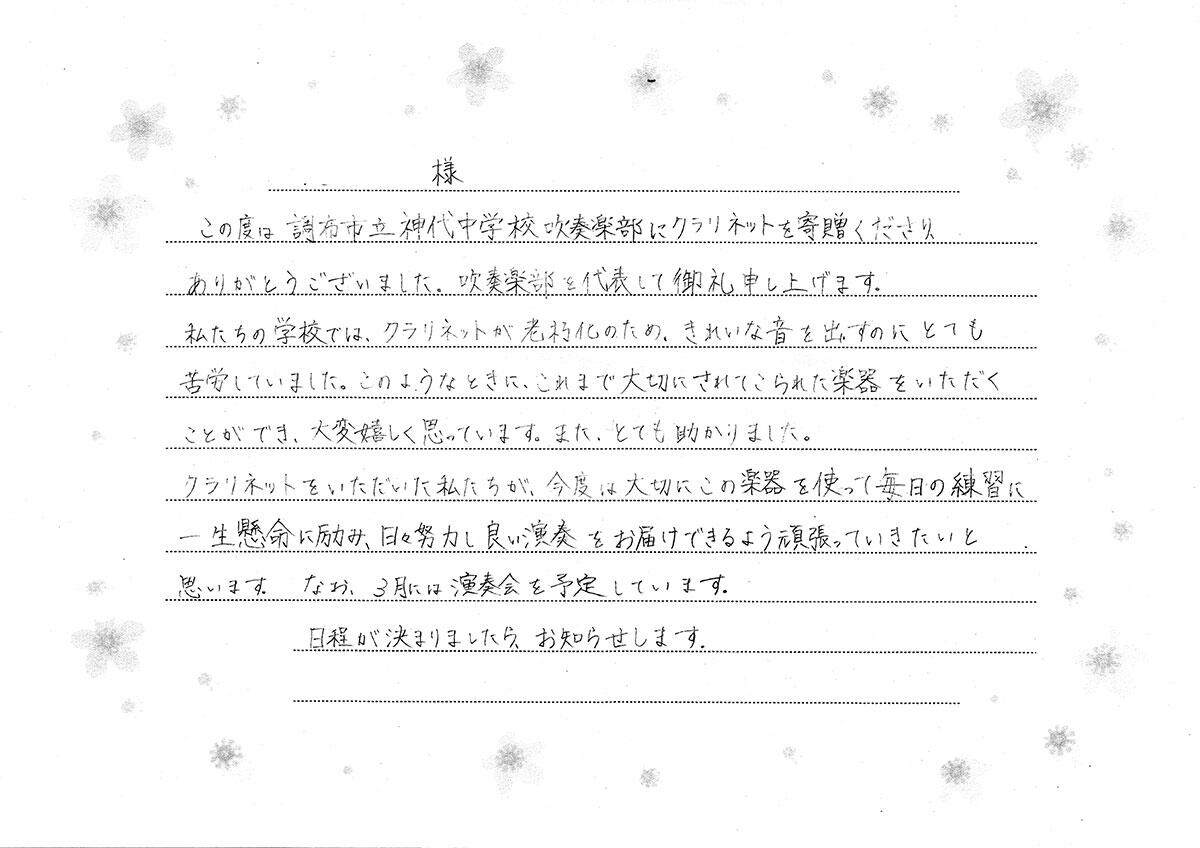 様
この度は調布市立神代中学校吹奏楽部にクラリネットを寄贈くださり、
ありがとうございました。吹奏楽部を代表して御礼申し上げます。
私たちの学校では、クラリネットが老朽化のため、きれいな音を出すのにとても
苦労していました。このようなときに、これまで大切にされてこられた楽器をいただく
ことができ、大変嬉しく思っています。また、とても助かりました。
クラリネットをいただいた私たちが、今度は大切にこの楽器を使って毎日の練習に
一生懸命に励み、日々努力し良い演奏をお届けできるよう頑張っていきたいと
思います。なお、3月には演奏会を予定しています。
日程が決まりましたら、お知らせします。